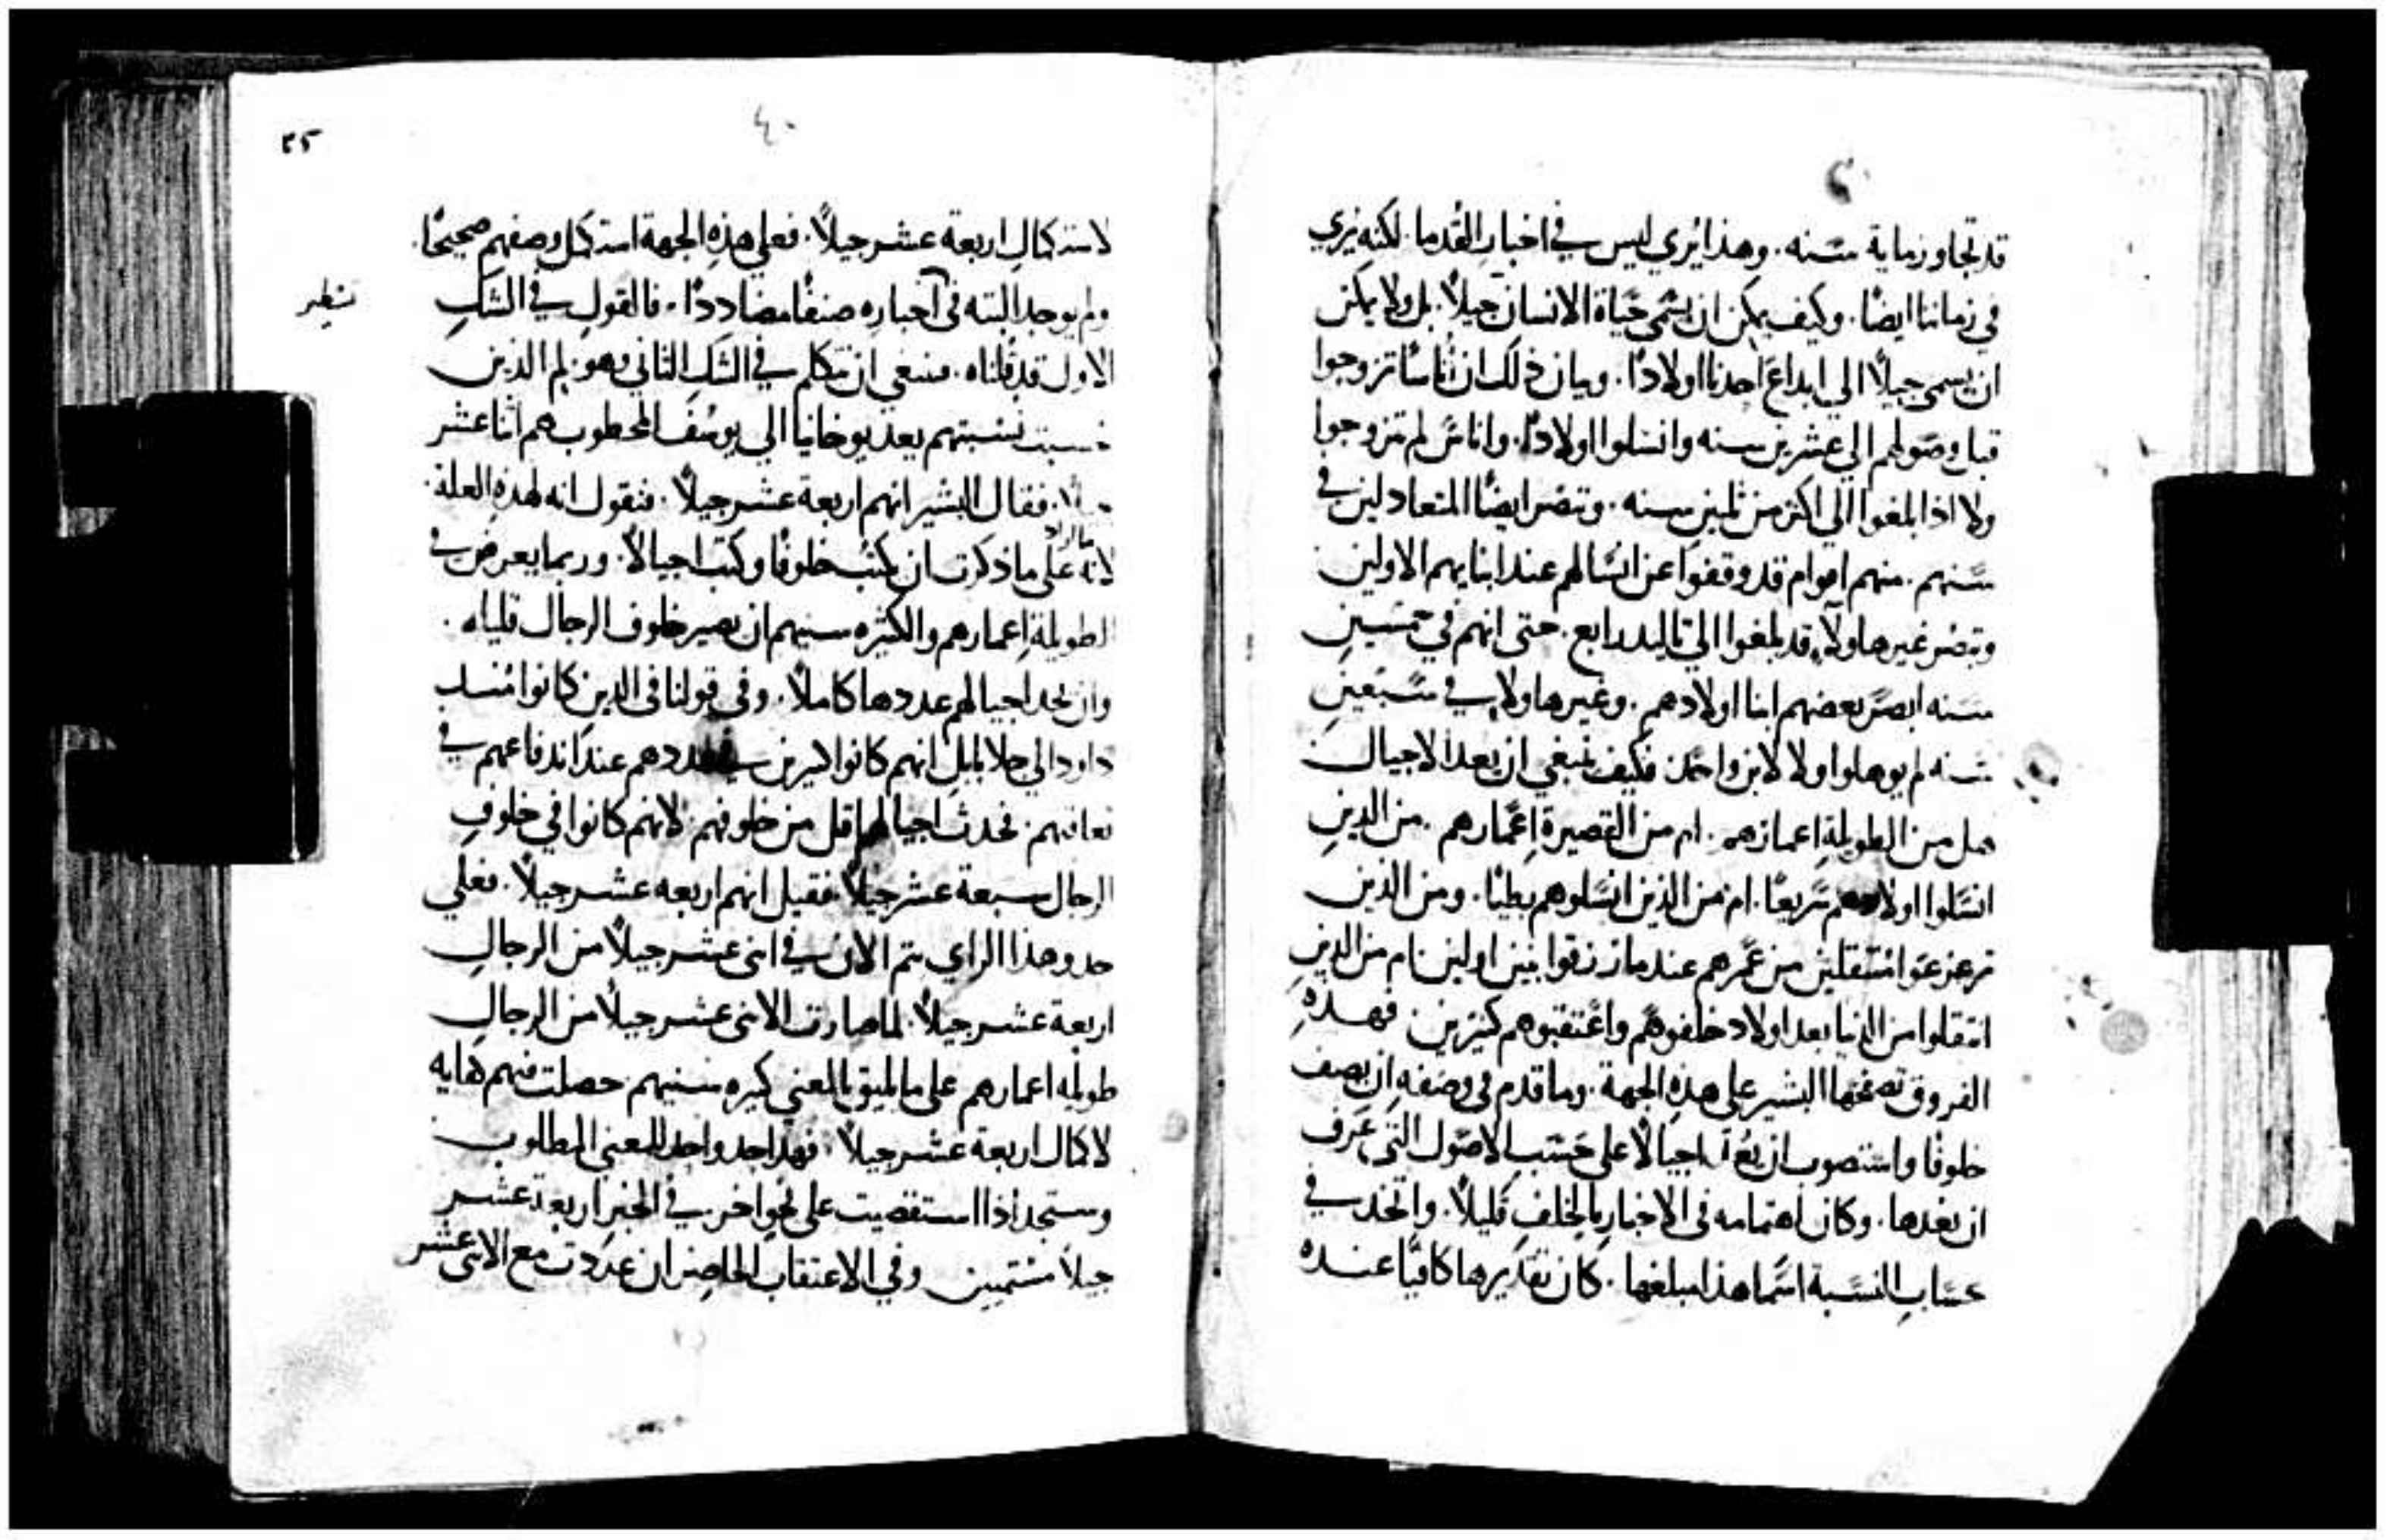 قد تجاوز ماية سنه. وهذا يُري ليس في اخبار القُدما. لكنه يُري
في زماننا ايضًا. وكيف يمكن ان يسمى حياة الانسان جيلاً. بل ولا يمكن
ان يسمى جيلاً الي ابداع احدنا اولادًا. وبيان ذلك ان ناسًا تزوجوا
قبل وصولهم الي عشرين سنه وانسلوا اولادًا. واناسٌ لم تزوجوا
ولا اذا بلغوا الي اكثر من ثلثين سنه. وتبصر ايضًا المتعادلين في
سنهم. منهم اقوام قد وقفوا عن انسالهم عند ابنايهم الاولين
وتبصر غيرهاولاء قد بلغوا الي رابع. حتى انهم في سنه ابصر بعضهم ابنا اولادهم. وغيرهاولاء في سبعين
سنه لم يوهلوا ولا لابن واحد. فكيف ينبغي ان يعد الاجيال
هل من الطويلة اعمارهم. ام من القصيرة اعمارهم. من الذين
انسلوا اولادهم سريعًا. ام من الذين انسلوهم بطيًا. ومن الذين
منتقلين من عمرهم عند ما رزقوا بنين اولين ام من الذين
انتقلوا من الدنيا بعد اولاد خلفوهم واعتقبوهم كثيرين فهذه
الفروق تصفحها البشير على هذه الجهة. وما قدم في وصفه ان يصف
خلوفًا واستصوب ان اجيالاً على حسب الاصول التي عرف
ان يعدها. وكان اهتمامه في الاخبار بالخلف قليلاً. واتخذ في
حساب النسبة اسما هذا مبلغها. كان تقديرها كافيًا عنده
٢٥
٤٠
لاستكمال اربعة عشر جيلاً. فعلي هذه الجهة استكمل وصفهم صحيحًا.
ولم يوجد البته في اخباره صنفًا مضاددًا. فالقول في الشك
الاول قد قلناه. فينبغي ان نتكلم في الشك الثاني وهو لم الذين
نسبتهم بعد يوخانيا الي يوسف المخطوب هم اثنا عشر
فقال البشير انهم اربعة عشر جيلاً. فنقول انه لهذه العلة.
لانه على ما ذكرت ان يكتب خلوفًا وكتب اجيالاً. وربما يعرض في
الطويلة اعمارهم والكثيره سنيهم ان يصير خلوف الرجال قليله.
وان نجد اجيالهم عددها كاملاً. وفي قولنا في الذين كانوا منذ
داود الي جلا بابل انهم كانوا اكثرين في عددهم عند اندفاعهم في
تعاقبهم. نجدت اجيالهم اقل من خلوفهم. لانهم كانوا في خلوف
الرجال سبعة عشر جيلاً فقيل انهم اربعه عشر جيلاً. فعلي
حد وهذا الراي يتم الان في اثنى عشر جيلاً من الرجال
اربعة عشر جيلاً. لما صارت الاثنى عشر جيلاً من الرجال
طويله اعمارهم على ما يليق بالمعني كثيره سنيهم حصلت منهم كفايه
لاكمال اربعة عشر جيلاً. فهذا حد واحد للمعني المطلوب
وستجد اذا استقصيت على نحو اخر في الخبر اربعة عشر
جيلاً متتممين وفي الاعتقاب الحاضر ان عددت مع الاثنى عشر